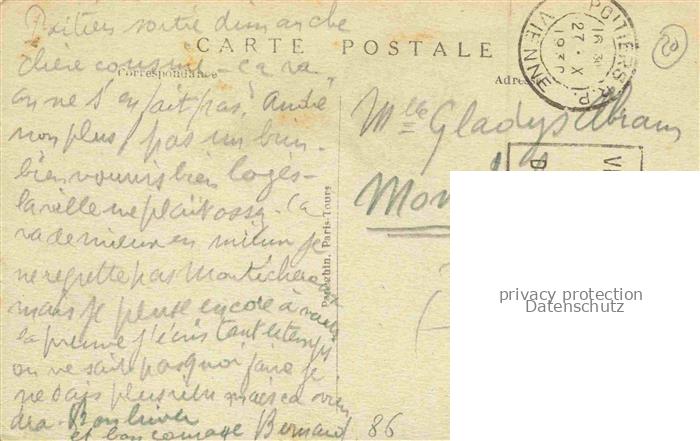 Poitiers sortie dimanche
CARTE POSTALE
Correspondance
Adresse
chère cousine – ça va,
on ne s'en fait pas, André
non plus, pas un brin.
bien nourris bien logés –
la ville me plait assez. Ca
va de mieux en mieux je
ne regrette pas Montichera
mais je pense encore à vous
la preuve j'écris tout le temps
on ne sait pas quoi faire je
ne dais plus rien mais ca vien
dra. Bon hiver
et bon courage Bernard
86
Mlle Gladys Abram
Mon
POITIERS R.P.
16 30
27 · X
193
VIENNE
20
VI
D
Daneghin, Paris-Tours
privacy protection
Datenschutz